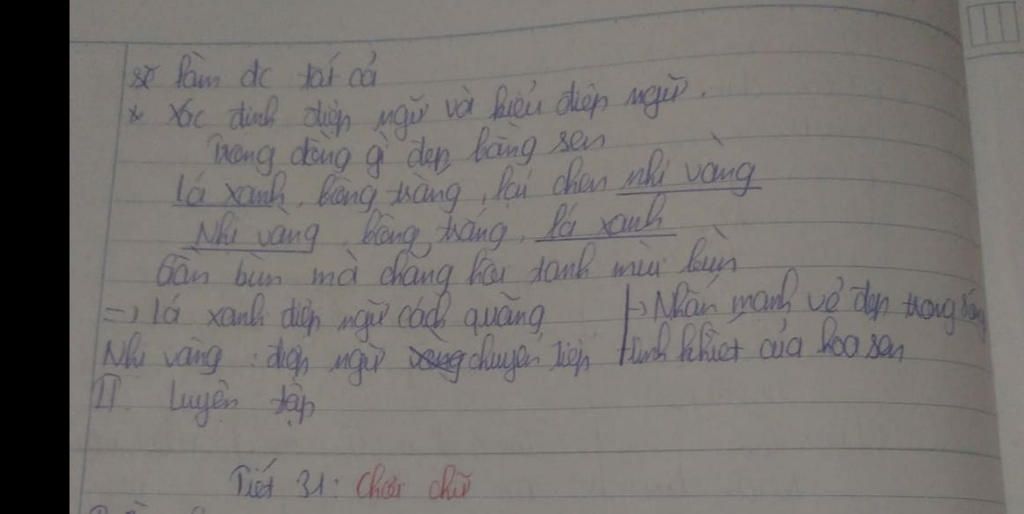 sẽ làm đc tất cả
* Xác định điệp ngữ và kiểu điệp ngữ.
Trong đầm gì đẹp bằng sen
Lá xanh, bông trắng, lại chen nhị vàng
Nhị vàng, bông trắng, lá xanh
Gần bùn mà chẳng hôi tanh mùi bùn
=> lá xanh điệp ngữ cách quãng
Nhị vàng : điệp ngữ chuyển tiếp
Nhấn mạnh vẻ đẹp trong
tinh khiết của hoa sen
II. Luyện tập
Tiết 31: Chơi chữ